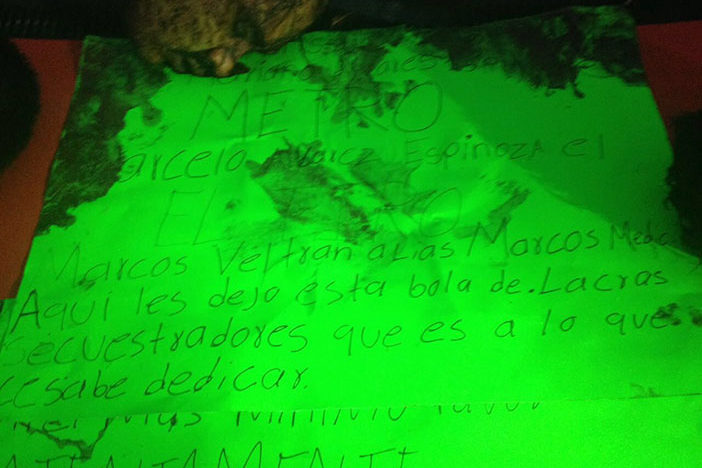 METRO
Marcelo Alvarez Espinoza el
EL
Marcos Veltran alias Marcos Medic
Aquí les dejo esta bola de. Lacras
Secuestradores que es a lo que
se sabe dedicar.
Mas Minimo favor
ATENTAMENTE